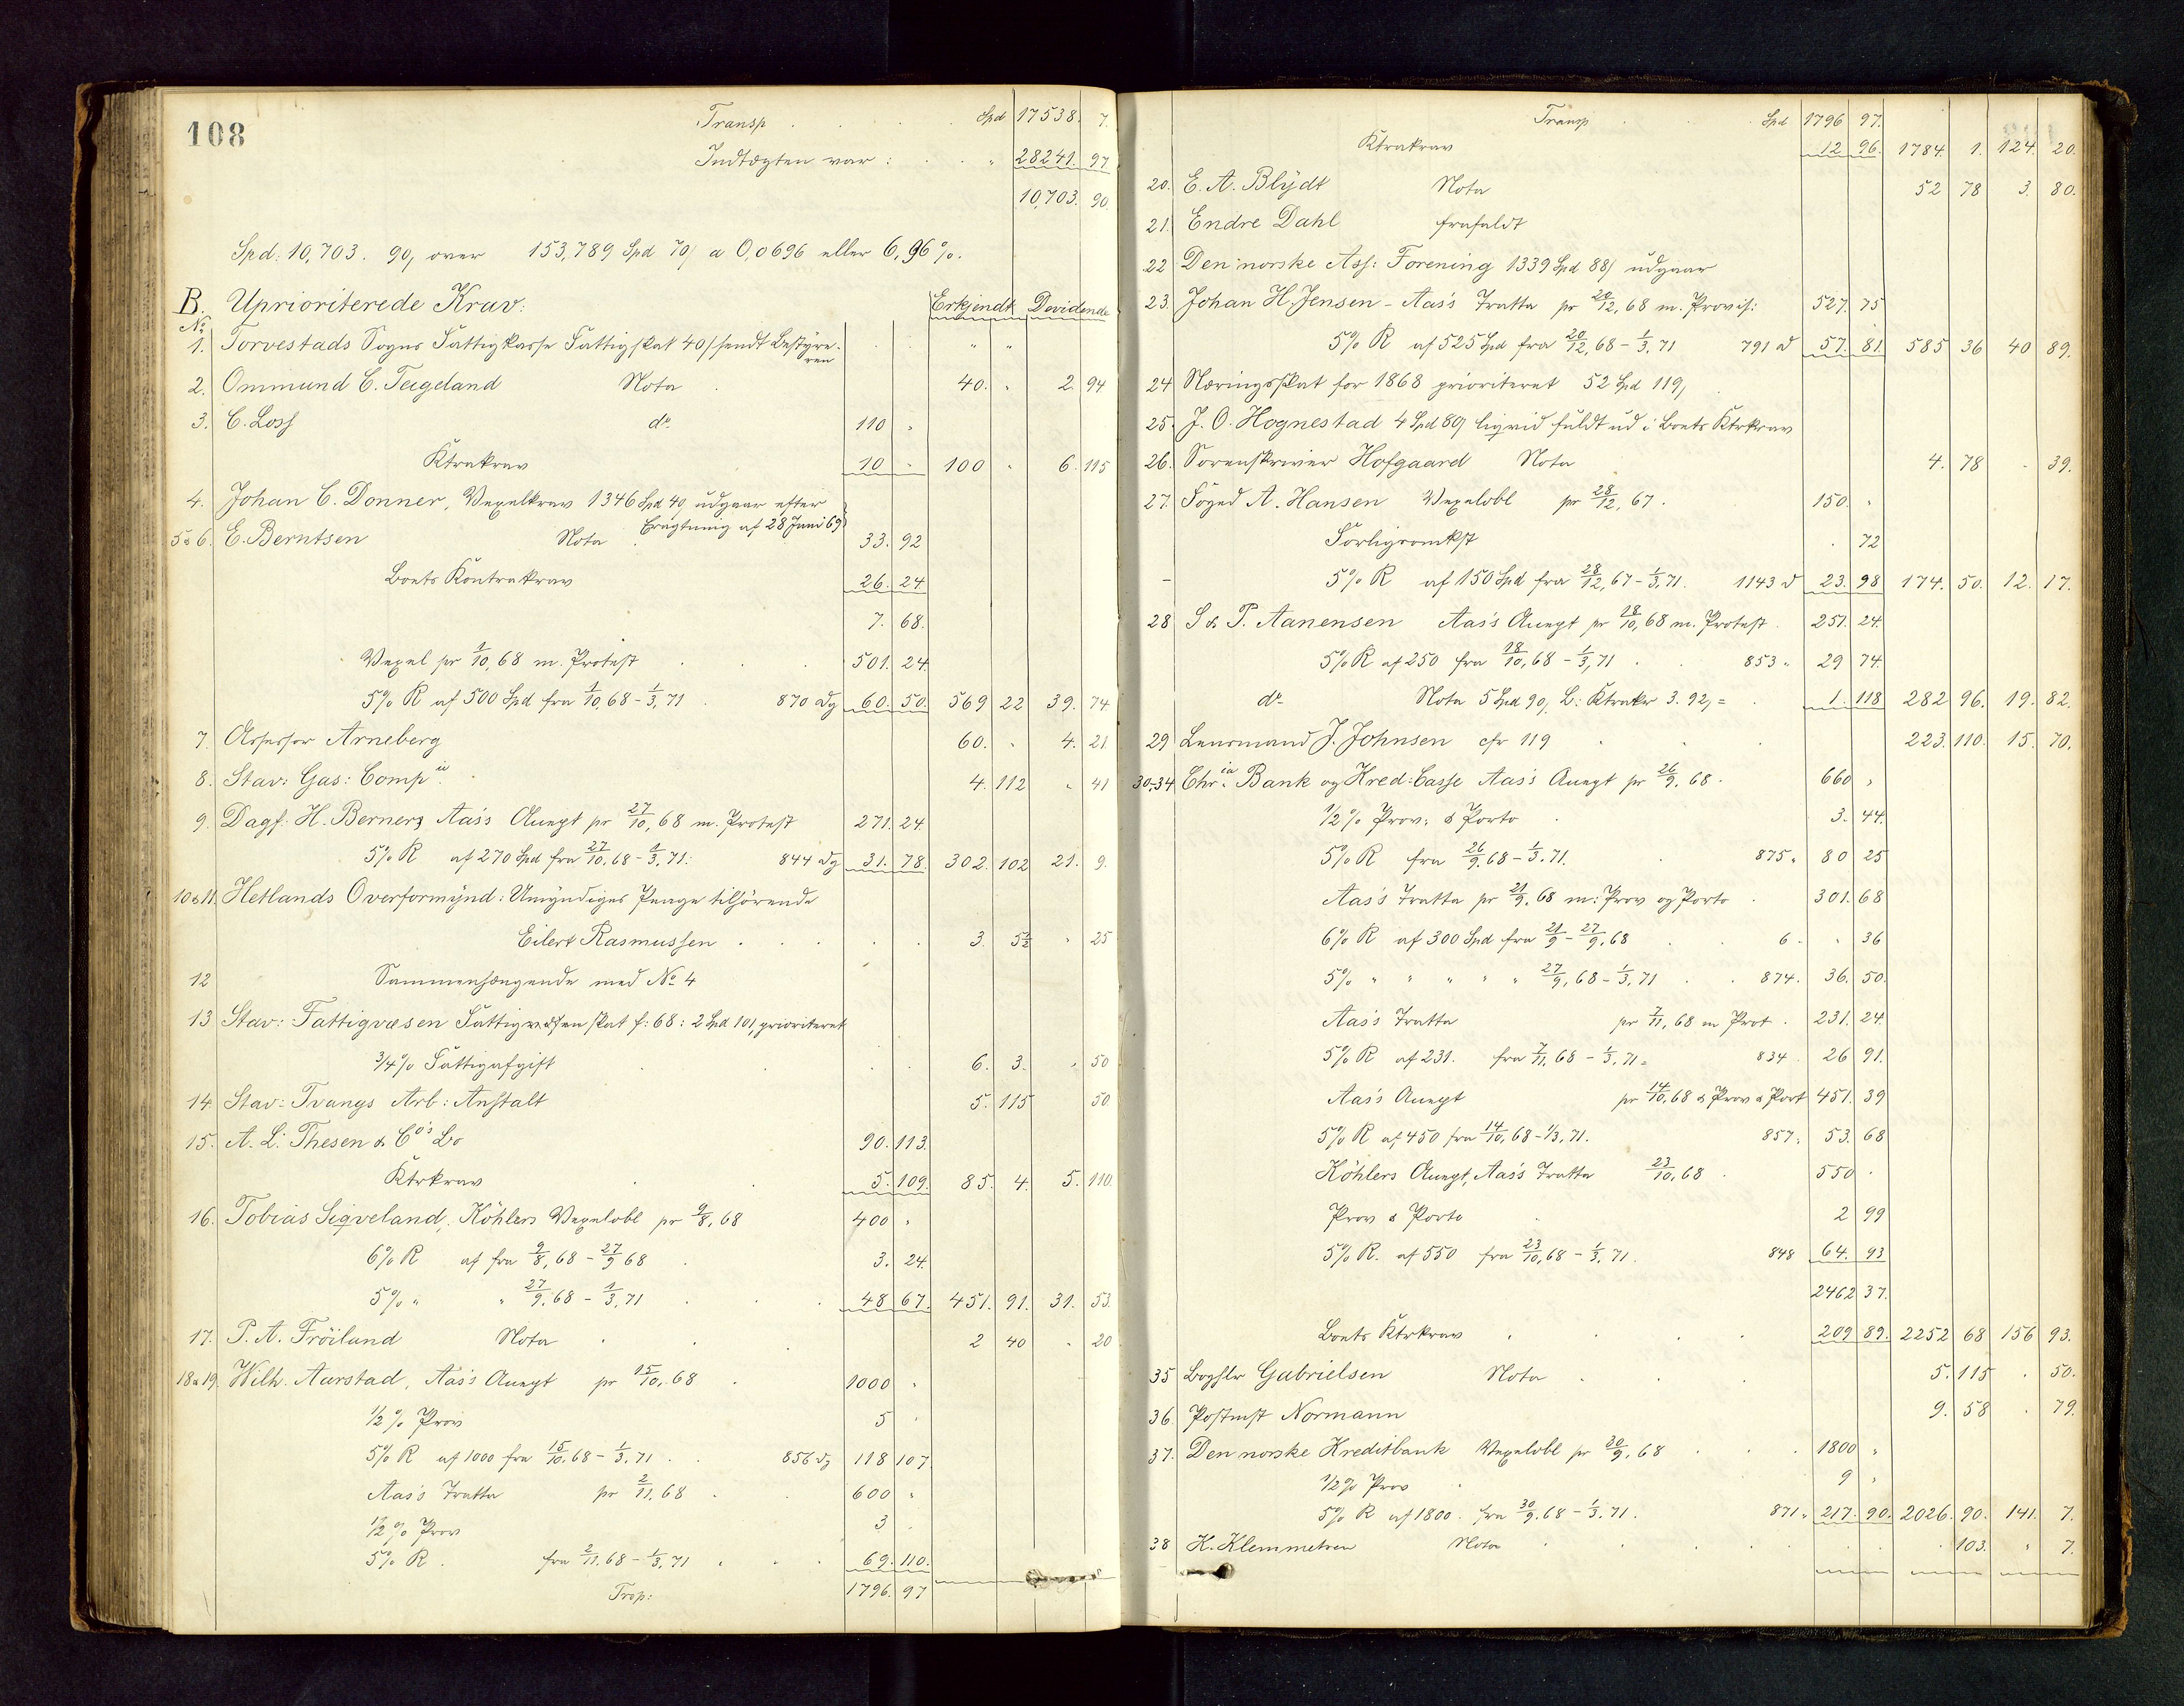 108
Transp Spd 17538. 7.
Indtægten var: " 28241. 97
10,703. 90.
Spd. 10,703. 90, over 153,789 Spd 70/ a 0,0696 eller 6,96%.
B. Uprioriterede Krav: Erkjendt Dividende
No
1. Torvestads Sogns Fattigkasse Fattigskat 40/ sendt Bestyre- " "
ren
2. Ommund C. Teigeland Nota 40. " 2. 94
3. C. Loss do 110 "
Ktrakrav 10 " 100 " 6. 115
4. Johan C. Donner, Vexelkrav 1346 Spd 40, udgaar efter
Eragtning af 28 Juni 69
5 & 6. E. Berntsen Nota 33. 92
Boets Kontrakrav 26. 24
7. 68.
Vexel pr 1/10, 68 m. Protest 501. 24
5% R af 500 Spd fra 1/10, 68 - 1/3, 71 870 Dg 60. 50. 569 22 39. 74
7. Assessor Arneberg 60. " 4. 21
8. Stav: Gas: Compie 4. 112 " 41
9. Dagf. H. Berners Aas's Accept pr 27/10, 68 m. Protest 271. 24.
5% R af 270 Spd fra 27/10, 68 - 1/3, 71: 844 Dg 31. 78. 302. 102 21. 9.
10 & 11. Hetlands Overformynd: Umyndiges Penge tilhörende
Eilert Rasmussen 3. 5½ " 25
12 Sammenhængende med No 4
13 Stav: Fattigvæsen Fattigvæsenskat f: 68: 2 Spd 101, prioriteret
3/4% Fattigafgift 6. 3. " 50
14. Stav: Tvangs Arb: Anstalt 5. 115 50
15. A. L. Thesen & Co's Bo 90. 113.
Ktrkrav 5. 109. 85. 4. 5. 110.
16. Tobias Sigveland, Köhlers Vexelobl pr 9/8, 68 400 "
6% R af fra 9/8, 68 - 27/9 68 3. 24.
5% " " 27/9, 68 - 1/3, 71 48 67. 451. 91. 31. 53.
17. P. A. Fröiland Nota 2 40 " 20
18 & 19. Wilh. Aarstad, Aas's Accept pr 15/10, 68 1000 "
1/2% Prov 5 "
5% R af 1000 fra 15/10, 68 - 1/3, 71 856 Dg 118 107
Aas's Tratta pr 2/11, 68 600 "
1/2% Prov 3 "
5% R. fra 2/11, 68 - 1/3, 71 69. 110.
Trsp: 1796. 97
Transp Spd 1796 97.
Ktrakrav 12 96. 1784. 1. 124. 20.
20. E. A. Blÿdt Nota 52 78 3. 80.
21. Endre Dahl frafaldt
22 Den norske Ass: Forening 1339 Spd 88/ udgaar
23. Johan H. Jensen - Aas's Tratta pr 20/12, 68 m. Provis: 527. 75
5% R af 525 Spd fra 20/12, 68 - 1/3, 71 791 d 57. 81. 585 36 40 89.
24 Næringsskat for 1868 prioriteret 52 Spd 119,
25. J. O. Hognestad 4 Spd 89/ liqvid fuldt ud i Boets Ktrkrav
26. Sorenskriver Hofgaard Nota 4. 78 " 39.
27. Foged A. Hansen Vexelobl pr 28/12, 67. 150. "
Forligsomkst 72
5% R af 150 Spd fra 28/12, 67 - 1/3, 71. 1143 d 23. 98 174. 50. 12. 17.
28 S & P. Aanensen Aas's Accept pr 18/10, 68 m. Protest. 251. 24.
5% R af 250 fra 18/10, 68 - 1/3, 71 853 " 29 74.
do Nota 5 Spd 90, B: Ktrakr 3. 92, = 1. 118 282 96. 19. 82.
29 Lensmand J. Johnsen cfr 119 223. 110. 15. 70.
30-34 Chria Bank og Kred: Casse Aas's Accept pr 26/9, 68. 660 "
1/2% Prov: & Porto 3. 44.
5% R fra 26/9, 68 - 1/3, 71. 875 " 80 25
Aas's Tratta pr 21/9, 68 m: Prov og Porto 301. 68
6% R af 300 Spd fra 21/9 - 27/9, 68 6. " 36
5% " " " " " 27/9, 68 - 1/3, 71 874. 36. 50.
Aas's Tratta pr 7/11, 68 m Prot. 231. 24.
5% R af 231. fra 7/11, 68 - 1/3, 71 = 834. 26 91.
Aas's Accept pr 14/10, 68 & Prov & Port 451. 39
5% R af 450 fra 14/10, 68 - 1/3, 71. 857. 53. 68
Köhlers Accept, Aas's Tratta 23/10, 68 550 "
Prov & Porto 2 99
5% R. af 550 fra 23/10, 68 - 1/3, 71. 848 64. 93
2462 37.
Boets Ktrkrav 209 89. 2252 68 156 93.
35 Boghlr Gabrielsen Nota 5. 115 " 50.
36. Postmst Normann 9. 58 " 79.
37. Den norske Kreditbank Vexelobl pr 30/9, 68 1800 "
1/2% Prov 9 "
5% R af 1800. fra 30/9, 68 - 1/3, 71. 871 " 217. 90. 2026. 90. 141. 7.
38 K. Klemmetsen Nota 103. " 7.